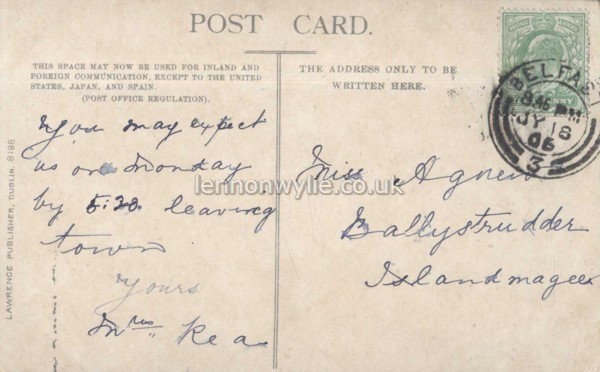 POST CARD.
THIS SPACE MAY NOW BE USED FOR INLAND AND
FOREIGN COMMUNICATION, EXCEPT TO THE UNITED
STATES, JAPAN, AND SPAIN.
(POST OFFICE REGULATION).
THE ADDRESS ONLY TO BE
WRITTEN HERE.
BELFAST
8.45 PM
JY 18
06
3
You may expect
us on Monday
by 5.30 leaving
town
Yours
Mrs Rea
Miss Agnew
Ballystrudder
Islandmagee
lennonwylie.co.uk
LAWRENCE PUBLISHER, DUBLIN, 8198